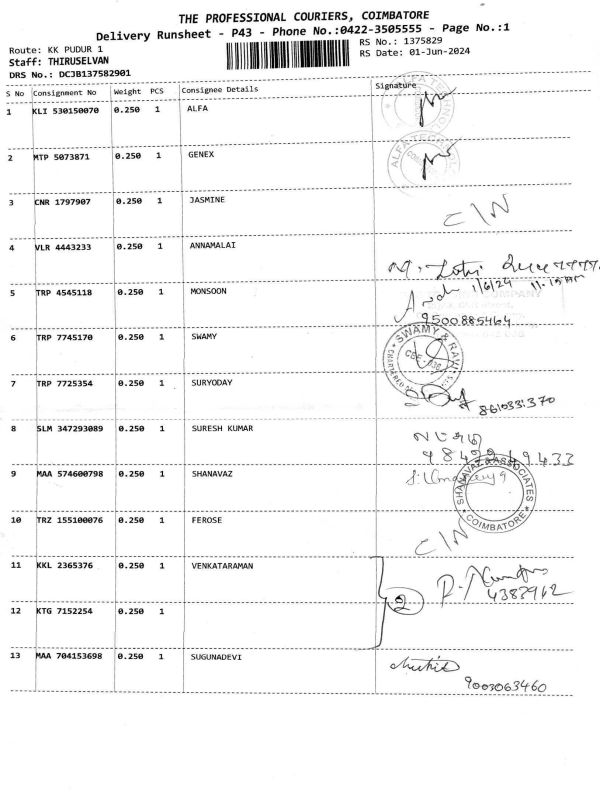 THE PROFESSIONAL COURIERS, COIMBATORE
Delivery Runsheet - P43 - Phone No.:0422-3505555 - Page No.:1
Route: KK PUDUR 1
RS No.: 1375829
Staff: THIRUSELVAN
RS Date: 01-Jun-2024
DRS No.: DCJB137582901
S No Consignment No Weight PCS Consignee Details Signature
1 KLI 530150070 0.250 1 ALFA
2 MTP 5073871 0.250 1 GENEX
3 CNR 1797907 0.250 1 JASMINE
C/N
4 VLR 4443233 0.250 1 ANNAMALAI
5 TRP 4545118 0.250 1 MONSOON
1/6/24
9500885464
6 TRP 7745170 0.250 1 SWAMY
SWAMY & RAVI
7 TRP 7725354 0.250 1 SURYODAY
8 SLM 347293089 0.250 1 SURESH KUMAR
9 MAA 574600798 0.250 1 SHANAVAZ
SHANAVAZ & ASSOCIATES
COIMBATORE
10 TRZ 155100076 0.250 1 FEROSE
C/N
11 KKL 2365376 0.250 1 VENKATARAMAN
4383962
2
12 KTG 7152254 0.250 1
13 MAA 704153698 0.250 1 SUGUNADEVI
9003063460